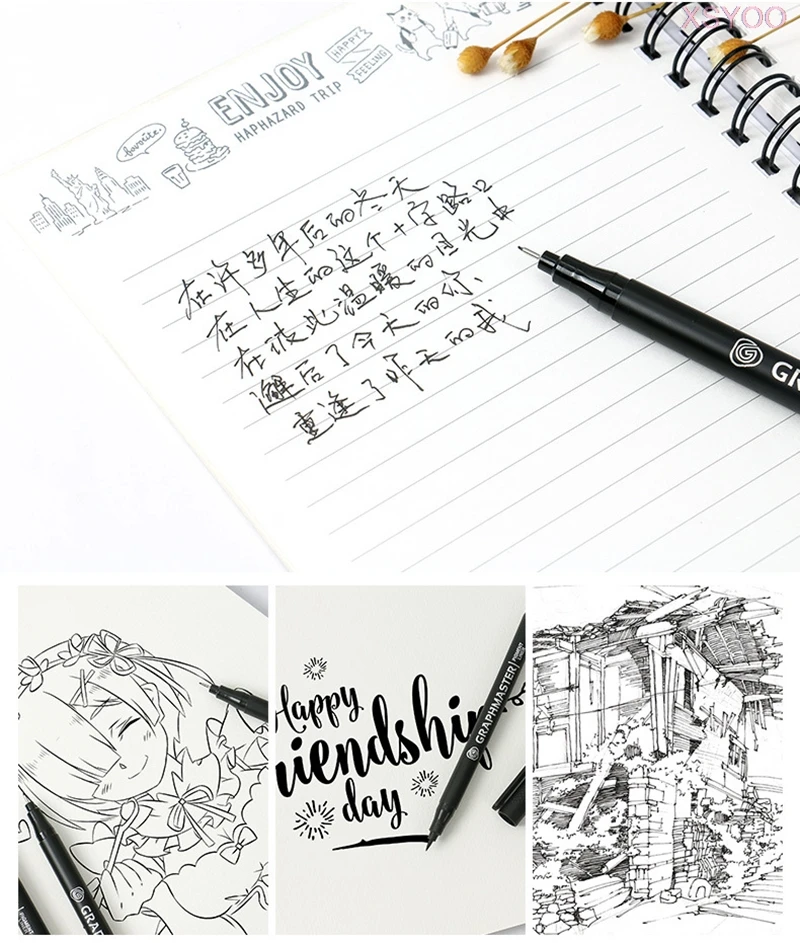 XSYOO
HAPPY
FEELING
ENJOY
HAPHAZARD TRIP
favorite.
在许多年后的冬天
在人生的这个十字路口
在彼此温暖的目光中
邂后了今天的你、
重逢了昨天的我
G GRA
Happy
riendship
day
GRAPHMASTER
GRAPH